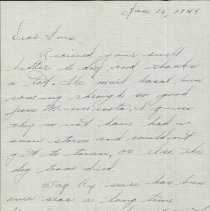 Jan. 16, 1944
Dear Lois
Received your swell
letter to day and thanks
a lot. The mail hasn't been
coming through so good
from Minnesota. I guess
they must have had a
snow storm and couldn't
get to town, or else the
dog team died.
Say Ray sure has been
over seas a long time.